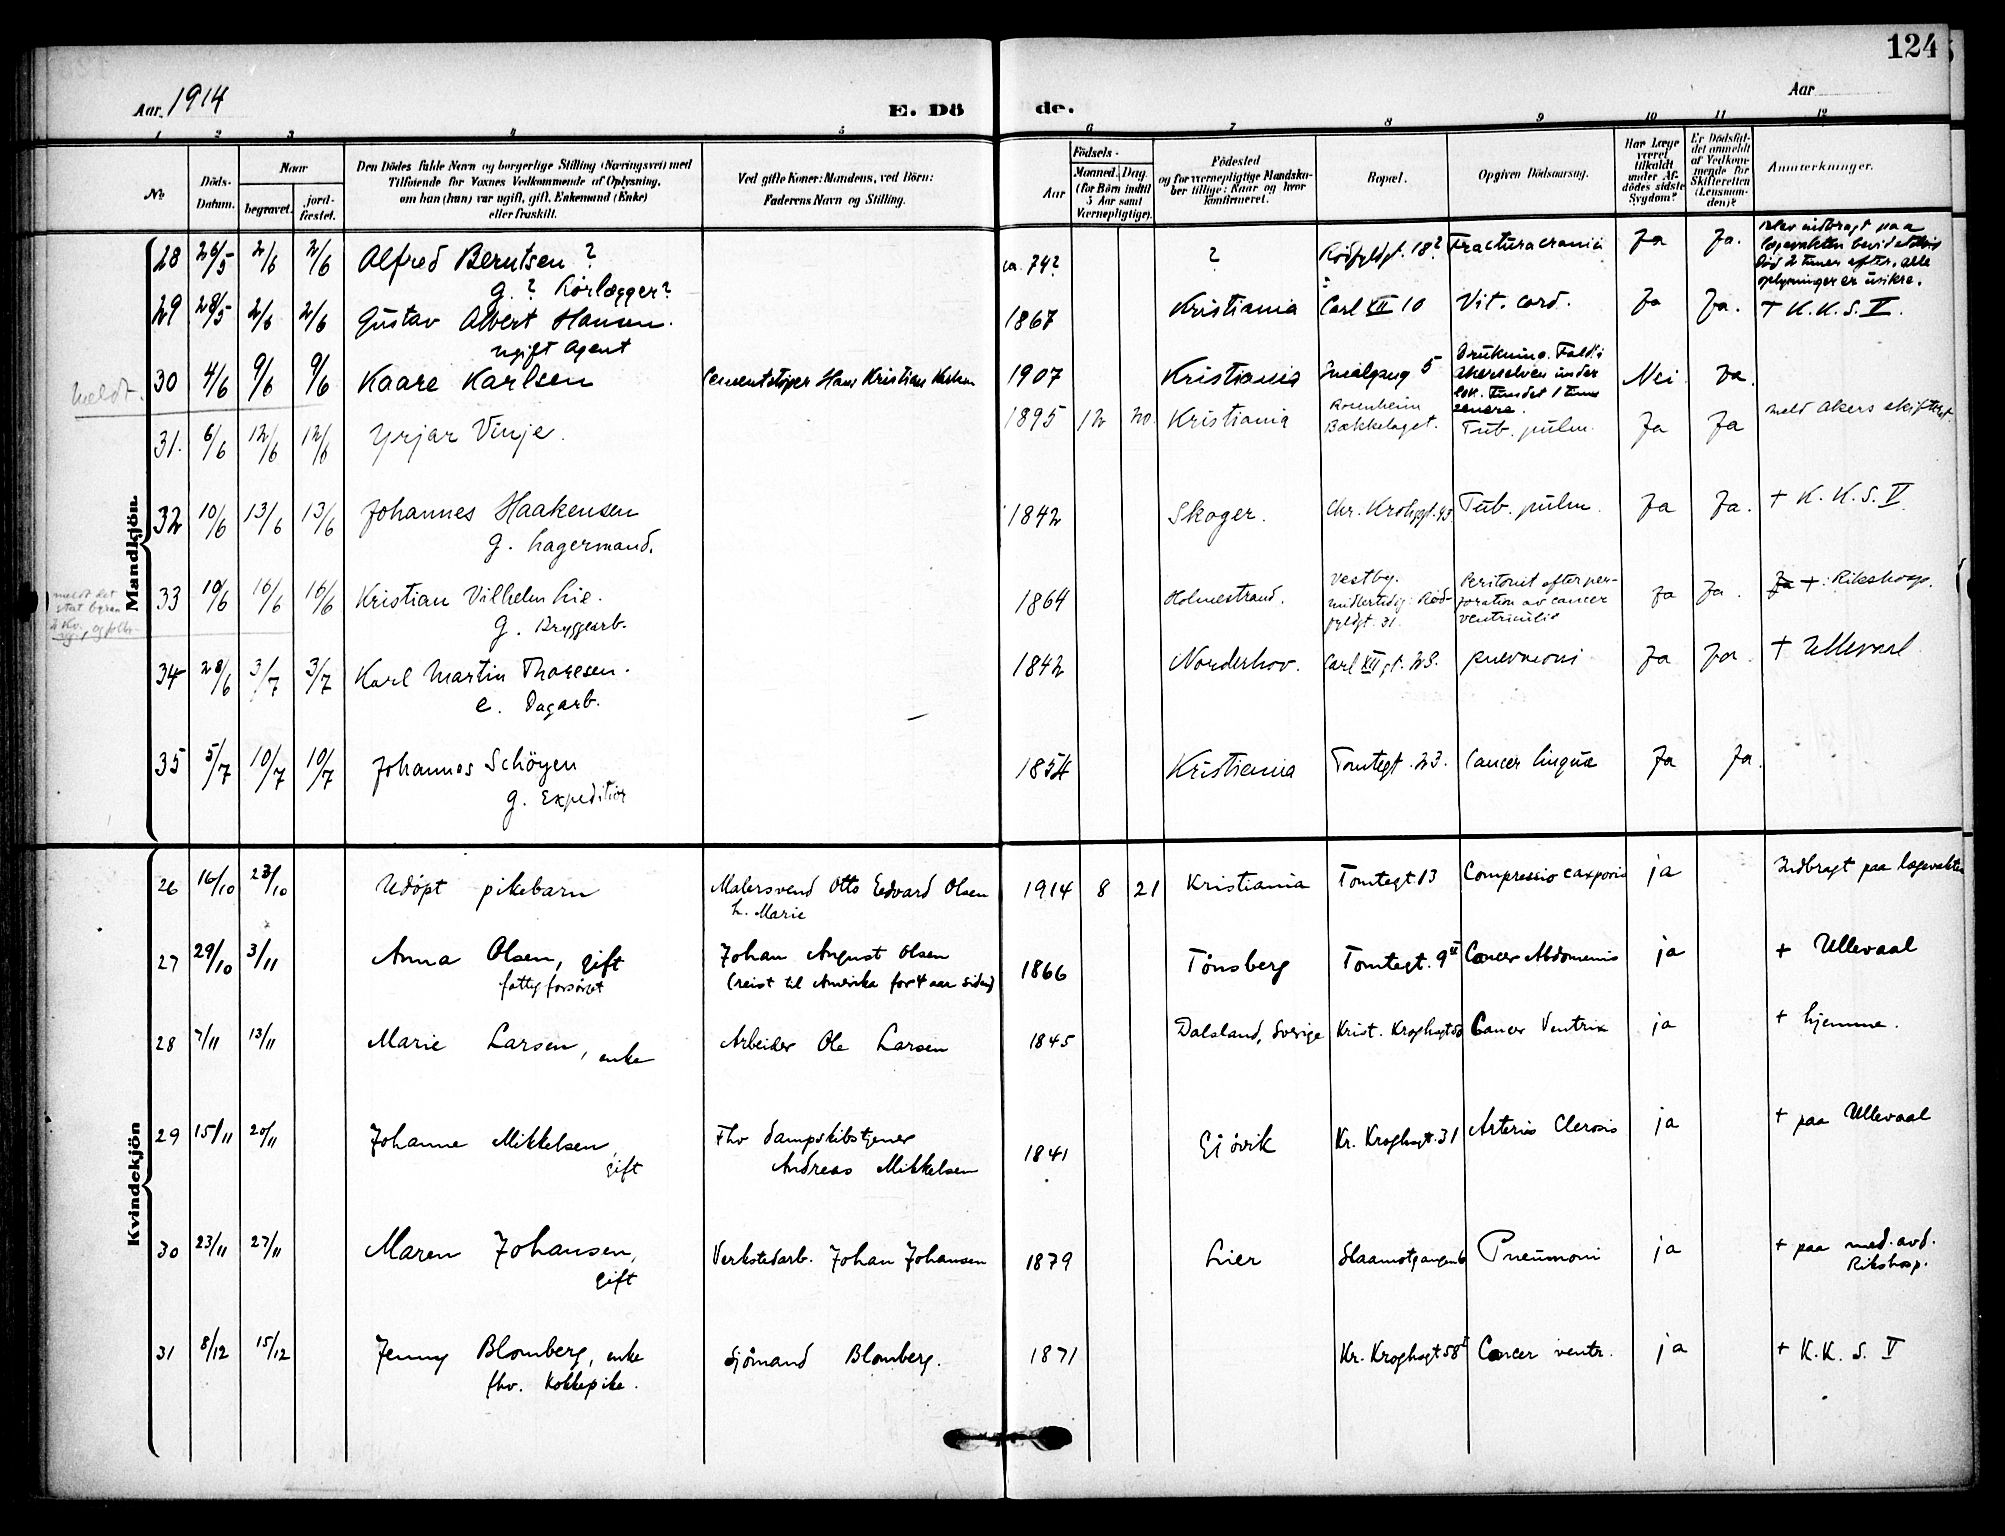 124
Aar 1914
E. Dö
de.
Aar
1 2 3 4 5 6 7 8 9 10 11 12
No
Döds-
Datum.
Naar
begravet.
jord-
fæstet.
Den Dödes fulde Navn og borgerlige Stilling (Næringsvei) med
Tilföiende for Voxnes Vedkommende af Oplysning,
om han (hun) var ugift, gift, Enkemand (Enke)
eller fraskilt.
Ved gifte Koner: Mandens, ved Börn:
Faderens Navn og Stilling.
Födsels-
Aar
Maaned. Dag.
(for Börn indtil
5 Aar samt
Værnepligtige).
Födested
og for værnepligtige Mandskaber tillige: Naar og hvor
konfirmeret.
Bopæl.
Opgiven Dödsaarsag.
Har Læge
været
tilkaldt
under Afdödes sidste
Sygdom?
Er Dödsfaldet anmeldt
af Vedkommende for
Skifteretten
(Lensmanden)?
Anmærkninger.
Mandkjön
28 26/5 2/6 2/6 Alfred Berntsen ? ca. 74? ? Rödfyldgt. 18? Fractura cranii Ja Ja. Blev indbragt paa
lægevakten bevidstlös
död 2 timer efter, alle
oplysninger er usikre.
g. ? Rörlægger?
29 28/5 2/6 2/6 Gustav Albert Hansen. 1867 Kristiania Carl XII 10 Vit. cord. Ja Ja. + K. K. S. V.
ugift Agent
meldt.
30 4/6 9/6 9/6 Kaare Karlsen Cementstöper Hans Kristian Karlsen 1907 Kristiania 5 Drukning. Fald i
Akerselven under
lek. Fundet 1 time
senere.
Nei Ja.
31. 6/6 12/6 12/6 Yrjar Vinje. 1895 12 20. Kristiania Rosenheim
Bækkelaget. Tub. pulm. Ja Ja meld Akers skifteret.
32 10/6 13/6 13/6 Johannes Haakensen 1842 Skoger. Chr. Krohgsgt. 93 Tub. pulm. Ja Ja. + K. K. S. V
g. Lagermand.
meldt det
stat. byraa
33 10/6 16/6 16/6 Kristian Vilhelm Lie. 1864 Holmestrand. Vestby.
midlertidig: Rödfyldgt. 31. Peritonit efter perforation av cancer
ventriculi Ja Ja. Ja +: Rikshosp.
g. Bryggearb.
34 28/6 3/7 3/7 Karl Martin Thoresen. 1842 Norderhov. Carl XII gt. 28. pneumoni Ja Ja. + Ullevaal
e. Dagarb.
35 5/7 10/7 10/7 Johannes Schöyen 1854 Kristiania Tomtegt. 23. Cancer lingua Ja Ja.
g. Expeditör
Kvindekjön
26 16/10 23/10 Udöpt pikebarn Malersvend Otto Eedvard Olsen 1914 8 21 Kristiania Tomtegt 13 Compressio corporis ja Indbragt paa lægevakten
h. Marie
27 29/10 3/11 Anna Olsen, gift Johan August Olsen 1866 Tönsberg Tomtegt. 9 II Cancer Abdominis ja + Ullevaal
fattigforsörget (reist til Amerika for 4 aar siden)
28 7/11 13/11 Marie Larsen, enke Arbeider Ole Larsen 1845 Dalsland, Sverige Krist. Kroghsgt 50 Cancer Ventrix ja + hjemme.
29 15/11 20/11 Johanne Mikkelsen, Fhv dampskibstjener 1841 Gjövik Kr. Kroghsgt. 31 Arterio Clerosis ja + paa Ullevaal
gift Andreas Mikkelsen
30 23/11 27/11 Maren Johansen, Verkstedarb. Johan Johansen 1879 Lier Slaamotgangen 6 Pneumoni ja + paa med. avd.
Rikshosp.
gift
31 8/12 15/12 Jenny Blomberg, enke Sjömand Blomberg. 1871 Kr. Kroghsgt 58 I Cancer ventr. ja + K.K. S. V
fhv. Kokkepike.